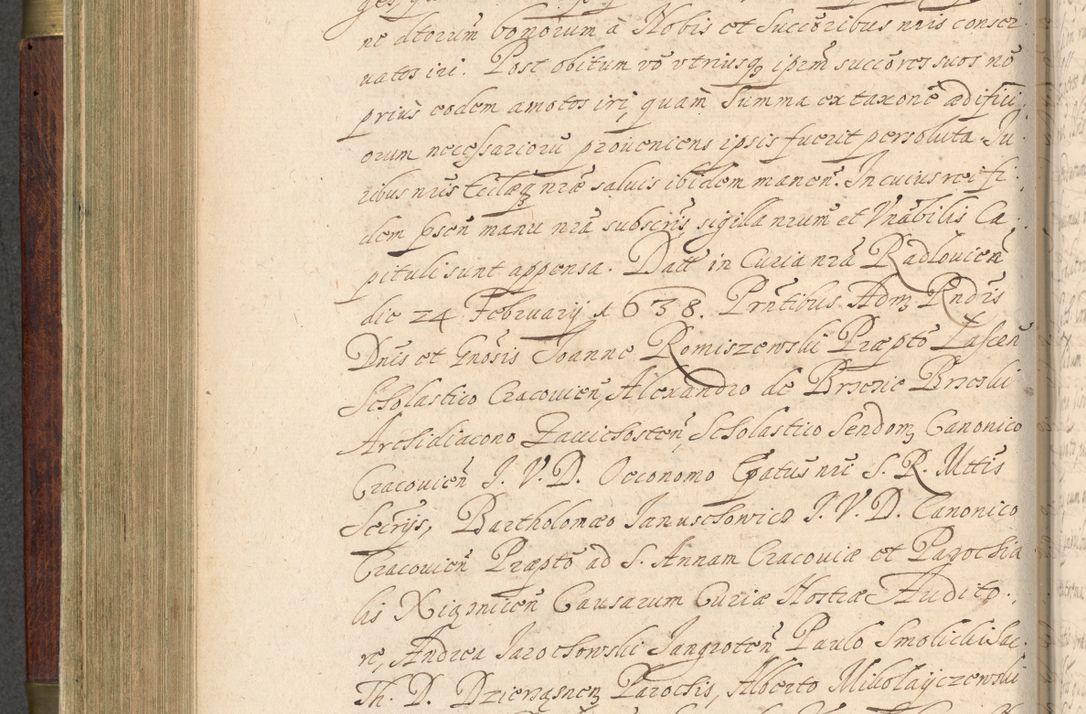 ne dtorum bonorum à Nobis et Succõribus nris conser
vatos iri. Post obitum vō utriusq; ipsm succōres suos nō
prius eodem amotos iri, quam Summa ex taxone ædifici
orum necessarioru proveniens ipsis fuerit persoluta. Ju
ribus nris Ecclæq; nræ salvis ibidem manen. In cuius rei fi
dem psen manu nrā subscris sigilla nrum et Vnabilis Ca
pituli sunt appensa. Datt in Curia nrā Radlovien
die 24 February 1638. Prntibus Adm Rndis
Dnis et Gnosis Joanne Romiszewski Præpto Lascen
Scholastico Cracovien, Alexandro de Brzezie Brzeski
Archidiacono Zavichosten Scholastico Sendom Canonico
Cracovien J. V. D. Oeconomo Epatus nri S. R. Mttis
Secrijs, Bartholomæo Januschowicz J. V. D. Canonico
Cracovien Præpto ad S. Annam Cracoviæ et Parochia
lis Xiąznicen Causarum Curiæ Nostræ Audito
re, Andrea Jarochowski Jangroten Paulo Smolicki Sac
Th. D. Dzierąsnen Parochis, Alberto Mikołayczewski